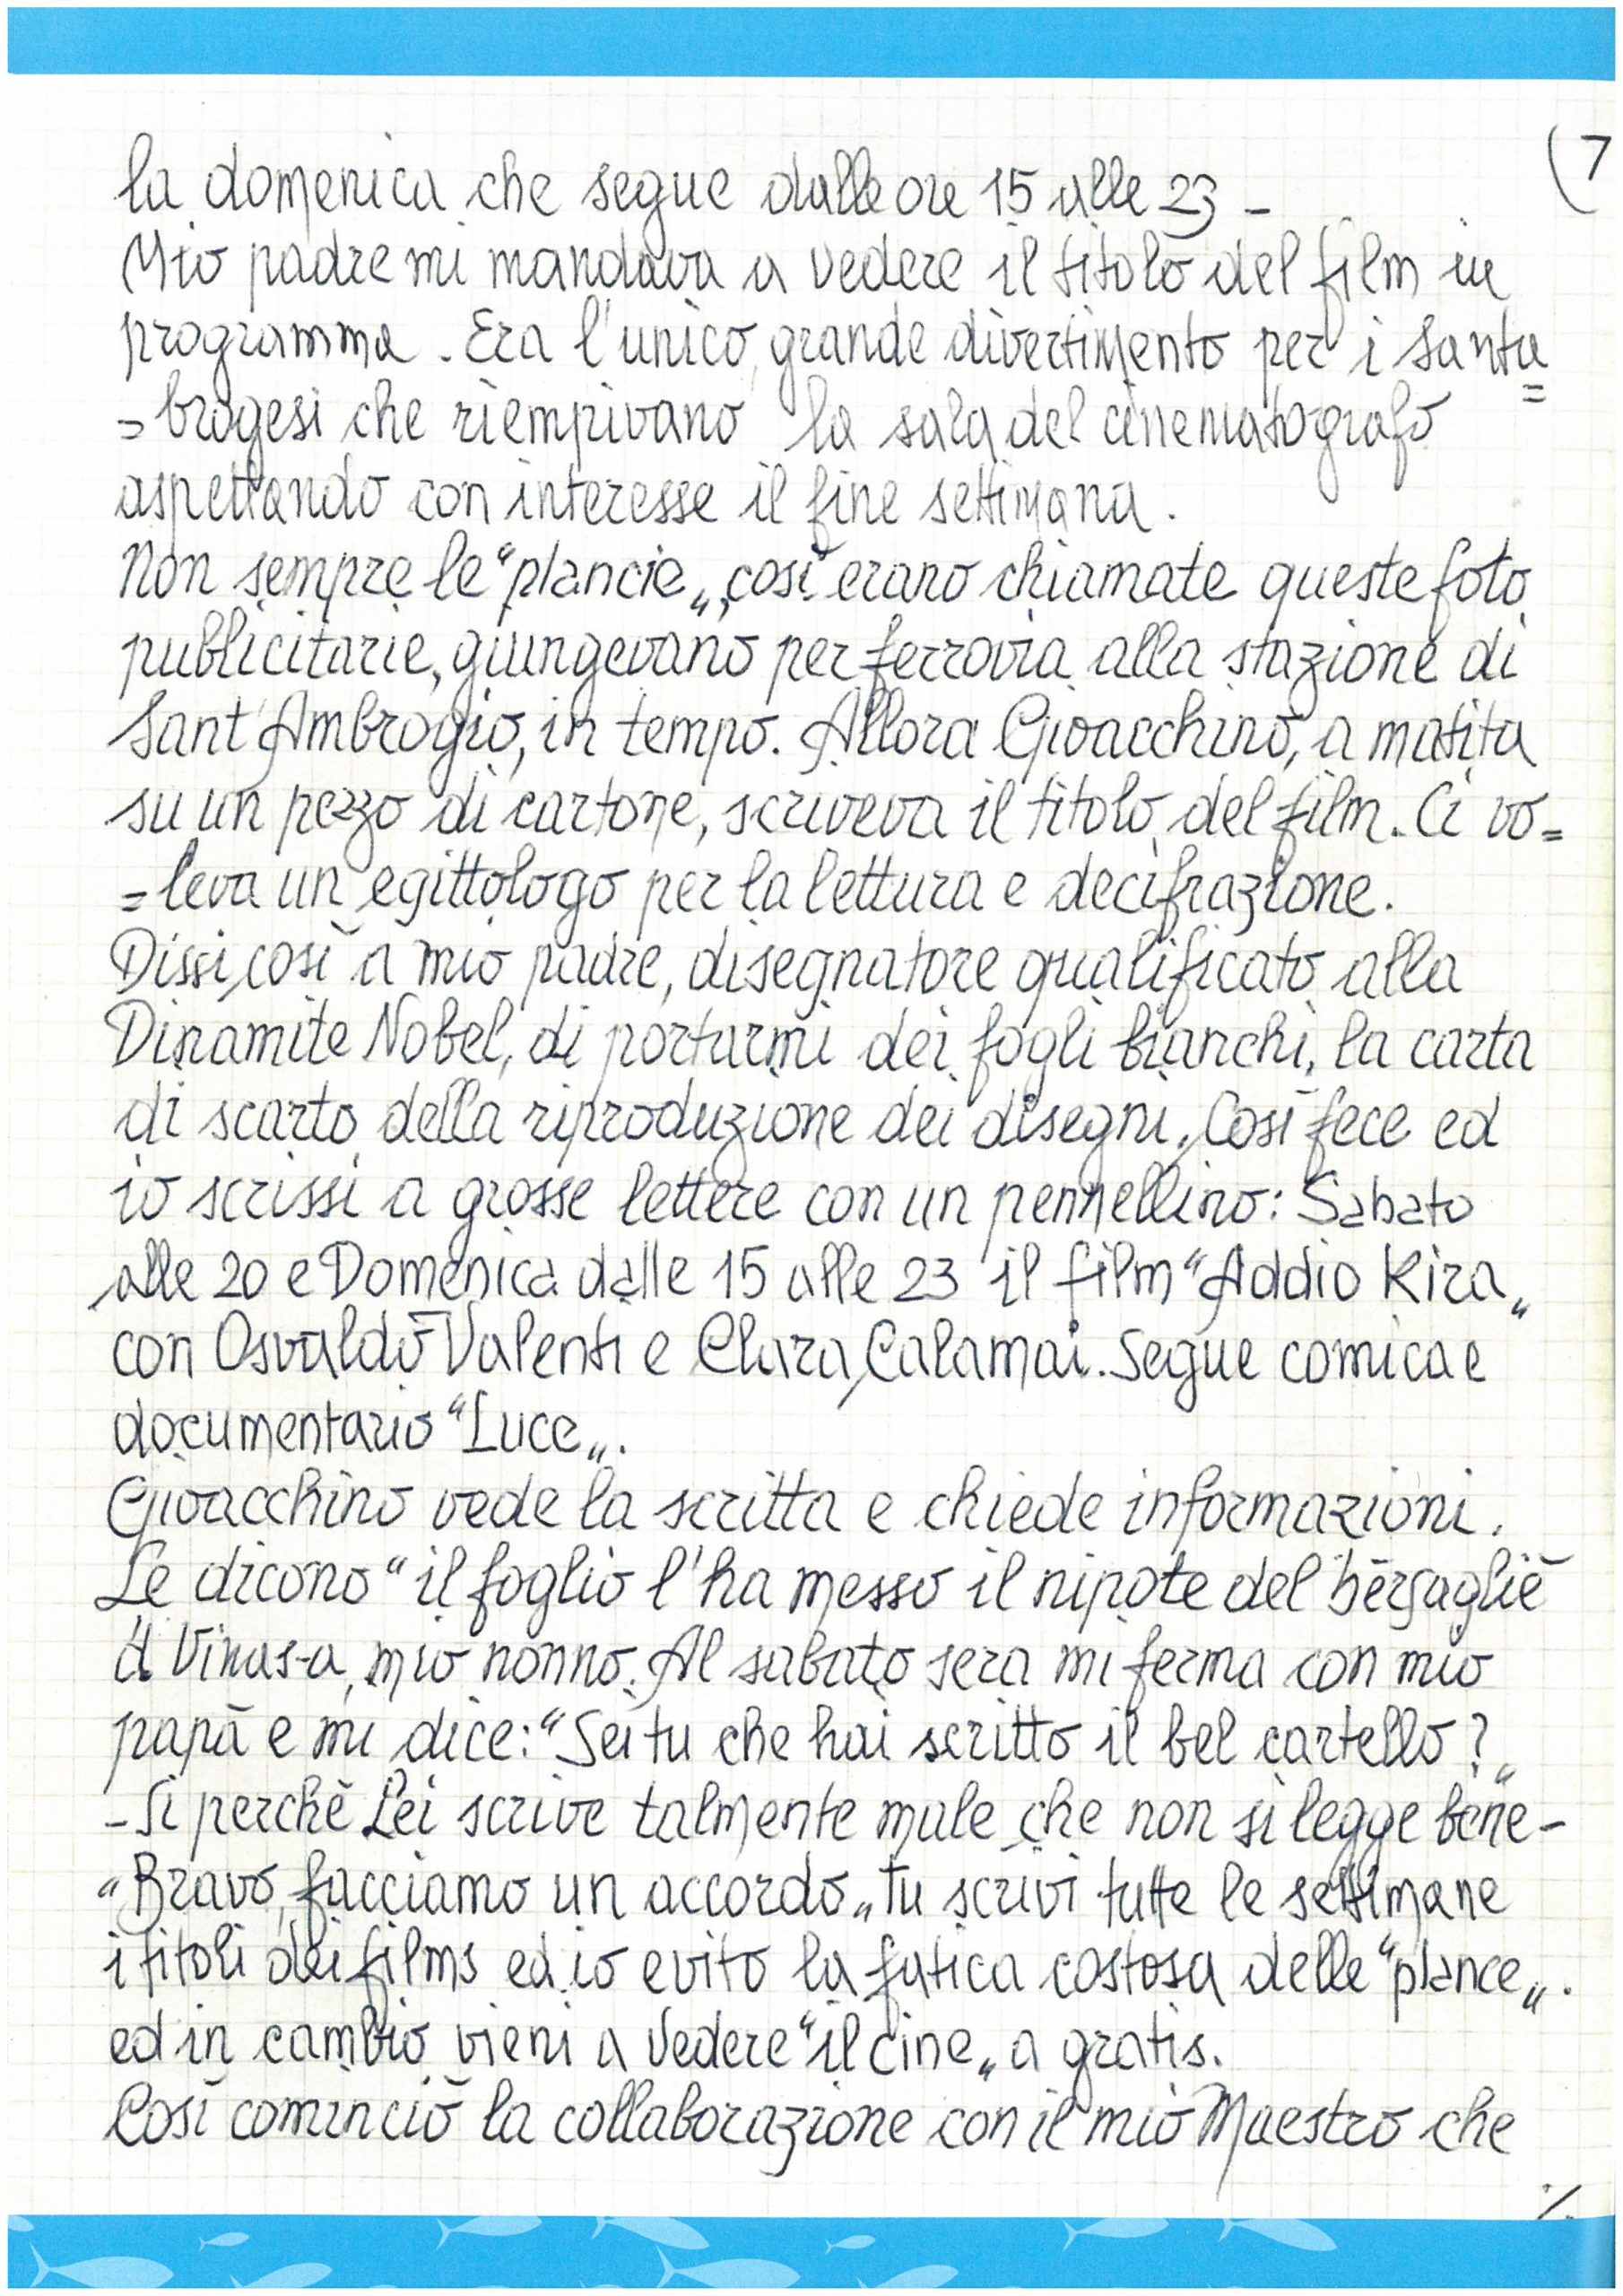 (7
la domenica che segue dalle ore 15 alle 23 -
Mio padre mi mandava a vedere il titolo del film in
programma. Era l'unico grande divertimento per i santa=
=brogesi che riempivano la sala del cinematografo
aspettando con interesse il fine settimana.
Non sempre le "plancie„, così erano chiamate queste foto
pubblicitarie, giungevano per ferrovia alla stazione di
Sant'Ambrogio, in tempo. Allora Gioacchino, a matita
su un pezzo di cartone, scriveva il titolo del film. Ci vo=
=leva un egittologo per la lettura e decifrazione.
Dissi così a mio padre, disegnatore qualificato alla
Dinamite Nobel, di portarmi dei fogli bianchi, la carta
di scarto della riproduzione dei disegni. Così fece ed
io scrissi a grosse lettere con un pennellino: Sabato
alle 20 e Domenica dalle 15 alle 23 il film "Addio Kira„
con Osvaldo Valenti e Clara Calamai. Segue comica e
documentario "Luce„.
Gioacchino vede la scritta e chiede informazioni.
Le dicono "il foglio l'ha messo il nipote del bërsagliè
'd Vinas-a, mio nonno. Al sabato sera mi ferma con mio
papà e mi dice: "Sei tu che hai scritto il bel cartello?„
- Sì perchè Lei scrive talmente male che non si legge bene -
"Bravo, facciamo un accordo„ Tu scrivi tutte le settimane
i titoli dei films ed io evito la fatica costosa delle "plance„.
ed in cambio vieni a vedere "il cine„ a gratis.
Così cominciò la collaborazione con il mio Maestro che
./.